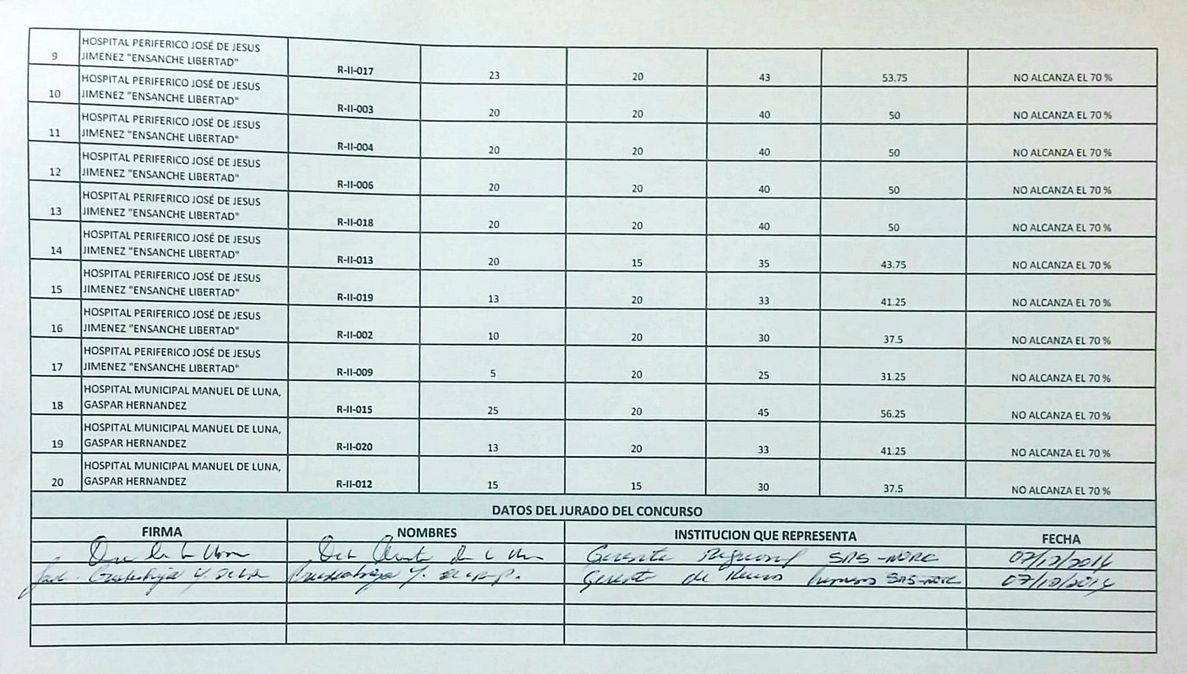 9 HOSPITAL PERIFERICO JOSÉ DE JESUS
JIMENEZ "ENSANCHE LIBERTAD" R-II-017 23 20 43 53.75 NO ALCANZA EL 70 %
10 HOSPITAL PERIFERICO JOSÉ DE JESUS
JIMENEZ "ENSANCHE LIBERTAD" R-II-003 20 20 40 50 NO ALCANZA EL 70 %
11 HOSPITAL PERIFERICO JOSÉ DE JESUS
JIMENEZ "ENSANCHE LIBERTAD" R-II-004 20 20 40 50 NO ALCANZA EL 70 %
12 HOSPITAL PERIFERICO JOSÉ DE JESUS
JIMENEZ "ENSANCHE LIBERTAD" R-II-006 20 20 40 50 NO ALCANZA EL 70 %
13 HOSPITAL PERIFERICO JOSÉ DE JESUS
JIMENEZ "ENSANCHE LIBERTAD" R-II-018 20 20 40 50 NO ALCANZA EL 70 %
14 HOSPITAL PERIFERICO JOSÉ DE JESUS
JIMENEZ "ENSANCHE LIBERTAD" R-II-013 20 15 35 43.75 NO ALCANZA EL 70 %
15 HOSPITAL PERIFERICO JOSÉ DE JESUS
JIMENEZ "ENSANCHE LIBERTAD" R-II-019 13 20 33 41.25 NO ALCANZA EL 70 %
16 HOSPITAL PERIFERICO JOSÉ DE JESUS
JIMENEZ "ENSANCHE LIBERTAD" R-II-002 10 20 30 37.5 NO ALCANZA EL 70 %
17 HOSPITAL PERIFERICO JOSÉ DE JESUS
JIMENEZ "ENSANCHE LIBERTAD" R-II-009 5 20 25 31.25 NO ALCANZA EL 70 %
18 HOSPITAL MUNICIPAL MANUEL DE LUNA,
GASPAR HERNANDEZ R-II-015 25 20 45 56.25 NO ALCANZA EL 70 %
19 HOSPITAL MUNICIPAL MANUEL DE LUNA,
GASPAR HERNANDEZ R-II-020 13 20 33 41.25 NO ALCANZA EL 70 %
20 HOSPITAL MUNICIPAL MANUEL DE LUNA,
GASPAR HERNANDEZ R-II-012 15 15 30 37.5 NO ALCANZA EL 70 %
DATOS DEL JURADO DEL CONCURSO
FIRMA NOMBRES INSTITUCION QUE REPRESENTA FECHA
Gerente Regional SRS-NORC
Gerente de SRS-NORC